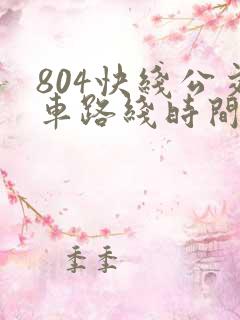 804快綫公交
車路綫時間
季季